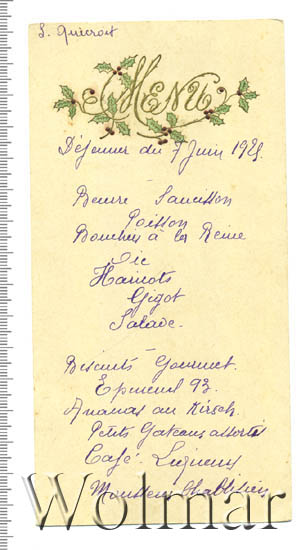 MENU
Déjeuner du 7 Juin 192
Beurre Saucisson
Poisson
Bouchées à la Reine
Haricots
Gigot
Salade
Biscuits Gourmet
93
Ananas au Kirsch
Petits Gateaux assortis
Café Liqueurs
Mousseux Chablisien
Wolmar